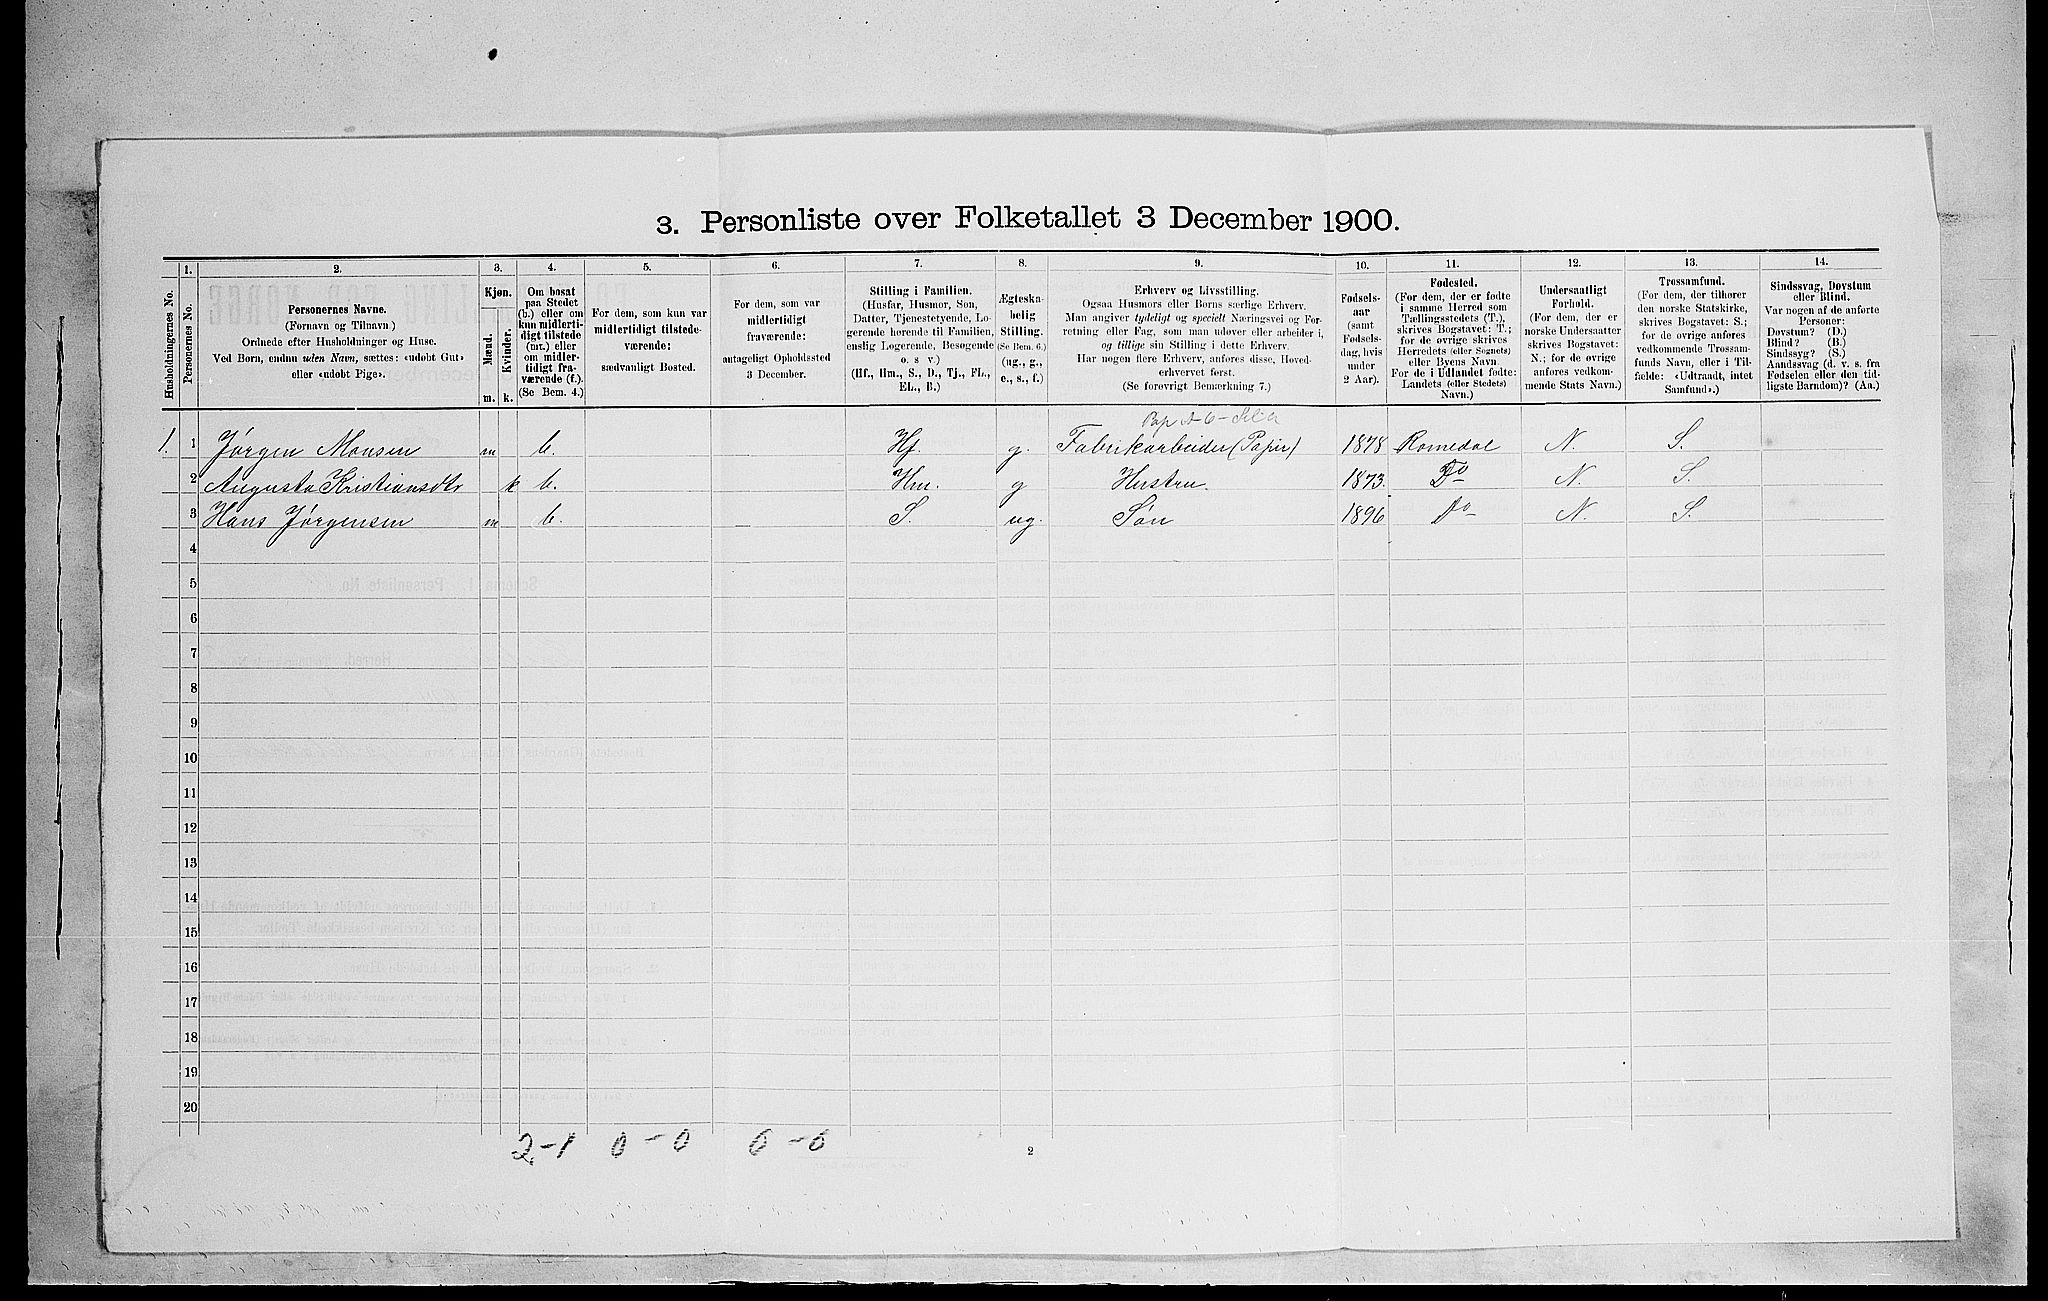 3. Personliste over Folketallet 3 December 1900.
Husholdningernes No.
1.
Personernes No.
2.
Personernes Navne.
(Fornavn og Tilnavn.)
Ordnede efter Husholdninger og Huse.
Ved Børn, endnu uden Navn, sættes: «udøbt Gut»
eller «udøbt Pige».
3.
Kjøn.
Mænd.
Kvinder.
m. k.
4.
Om bosat
paa Stedet
(b.) eller om
kun midlerti-
digt tilstede
(mt.) eller
om midler-
tidigt fra-
værende (f.).
(Se Bem. 4.)
5.
For dem, som kun var
midlertidigt tilstede-
værende:
sædvanligt Bosted.
6.
For dem, som var
midlertidigt
fraværende:
antageligt Opholdssted
3 December.
7.
Stilling i Familien.
(Husfar, Husmor, Søn,
Datter, Tjenestetyende, Lo-
gerende hørende til Familien,
enslig Logerende, Besøgende
o. s v.)
(Hf., Hm., S., D., Tj., Fl.,
El., B.)
8.
Ægteska-
belig
Stilling.
(Se Bem. 6.)
(ug., g.,
e., s., f.)
9.
Erhverv og Livsstilling.
Ogsaa Husmors eller Børns særlige Erhverv.
Man angiver tydeligt og specielt Næringsvei og For-
retning eller Fag, som man udøver eller arbeider i,
og tillige sin Stilling i dette Erhverv.
Har nogen flere Erhverv, anføres disse, Hoved-
erhvervet først.
(Se forøvrigt Bemærkning 7.)
10.
Fødsels-
aar
(samt
Fødsels-
dag, hvis
under
2 Aar).
11.
Fødested.
(For dem, der er fødte
i samme Herred som
Tællingsstedets (T.),
skrives Bogstavet: T.;
for de øvrige skrives
Herredets (eller Sognets)
eller Byens Navn.
For de i Udlandet fødte:
Landets (eller Stedets)
Navn.)
12.
Undersaatligt
Forhold.
(For dem, der er
norske Undersaatter
skrives Bogstavet:
N.; for de øvrige
anføres vedkom-
mende Stats Navn.)
13.
Trossamfund.
(For dem, der tilhører
den norske Statskirke,
skrives Bogstavet: S.;
for de øvrige anføres
vedkommende Trossam-
funds Navn, eller i Til-
fælde: «Udtraadt, intet
Samfund».)
14.
Sindssvag, Døvstum
eller Blind.
Var nogen af de anførte
Personer:
Døvstum? (D.)
Blind? (B.)
Sindssyg? (S.)
Aandssvag (d. v. s. fra
Fødselen eller den tid-
ligste Barndom)? (Aa.)
1. 1 Jørgen Monsen m b. Hf. g. Fabrikarbeider (Papir) 1878 Romedal N. S.
2 Augusta Kristiansdtr k b. Hm. g Hustru. 1873. Do N. S.
3 Hans Jørgensen m b. S. ug. Søn 1896 Do N. S.
4
5
6
7
8
9
10
11
12
13
14
15
16
17
18
19
20
2-1 0-0 0-0
2